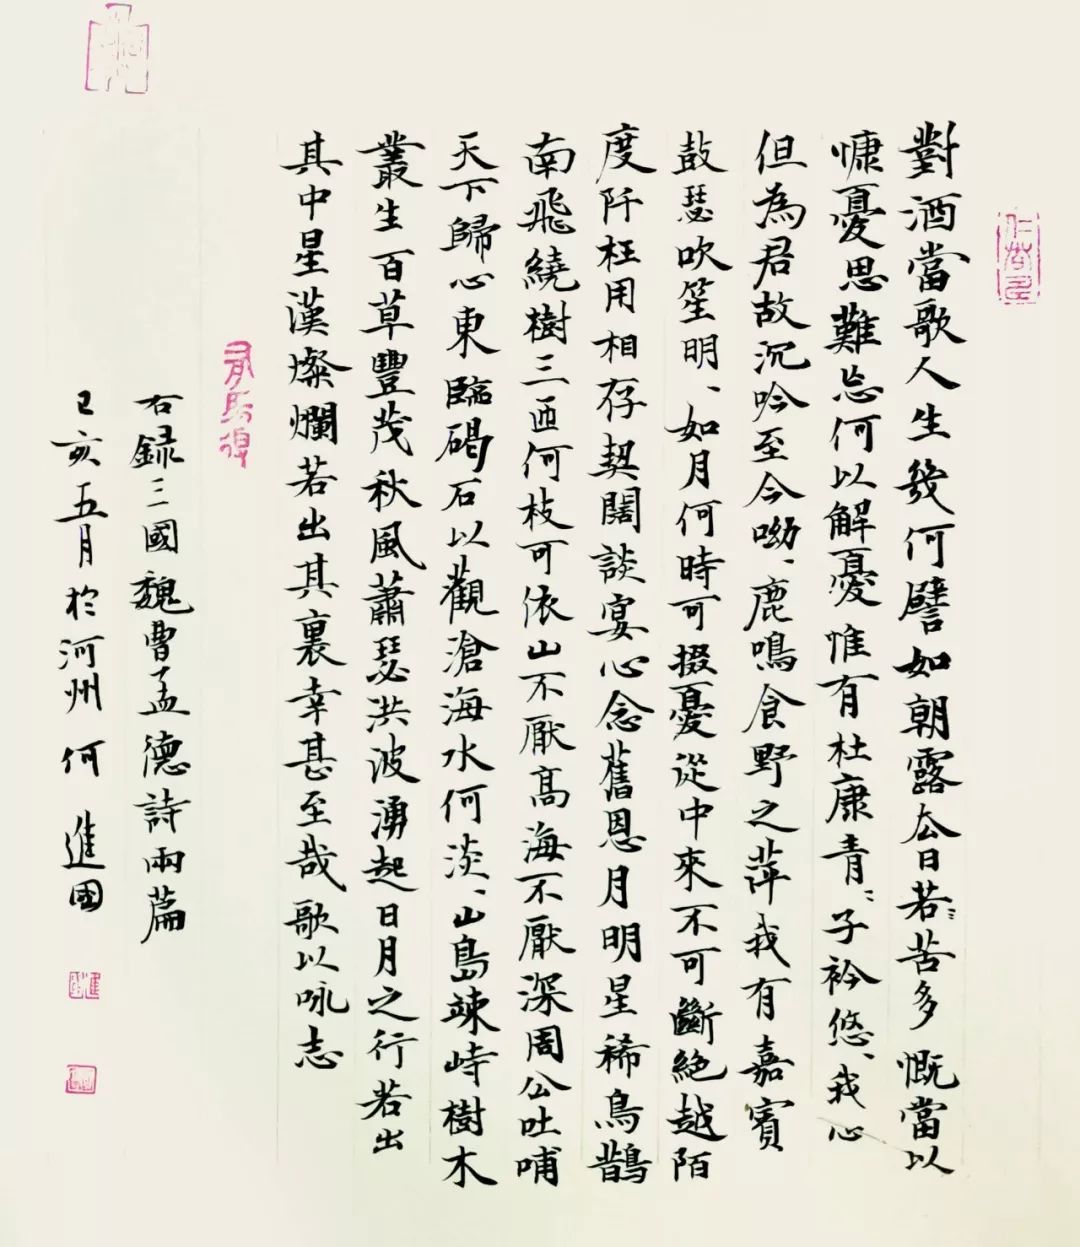 對酒當歌人生幾何譬如朝露厺日若苦多慨當以
慷憂思難忘何以解憂惟有杜康青〻子衿悠、我心
但為君故沉吟至今呦、鹿鳴食野之萍我有嘉賓
鼓瑟吹笙明、如月何時可掇憂從中來不可斷絕越陌
度阡枉用相存契闊談宴心念舊恩月明星稀烏鵲
南飛繞樹三匝何枝可依山不厭高海不厭深周公吐哺
天下歸心東臨碣石以觀滄海水何淡、山島竦峙樹木
叢生百草豐茂秋風蕭瑟洪波湧起日月之行若出
其中星漢燦爛若出其裏幸甚至哉歌以咏志
右録三國魏曹孟德詩兩篇
己亥五月於河州何進國
進國